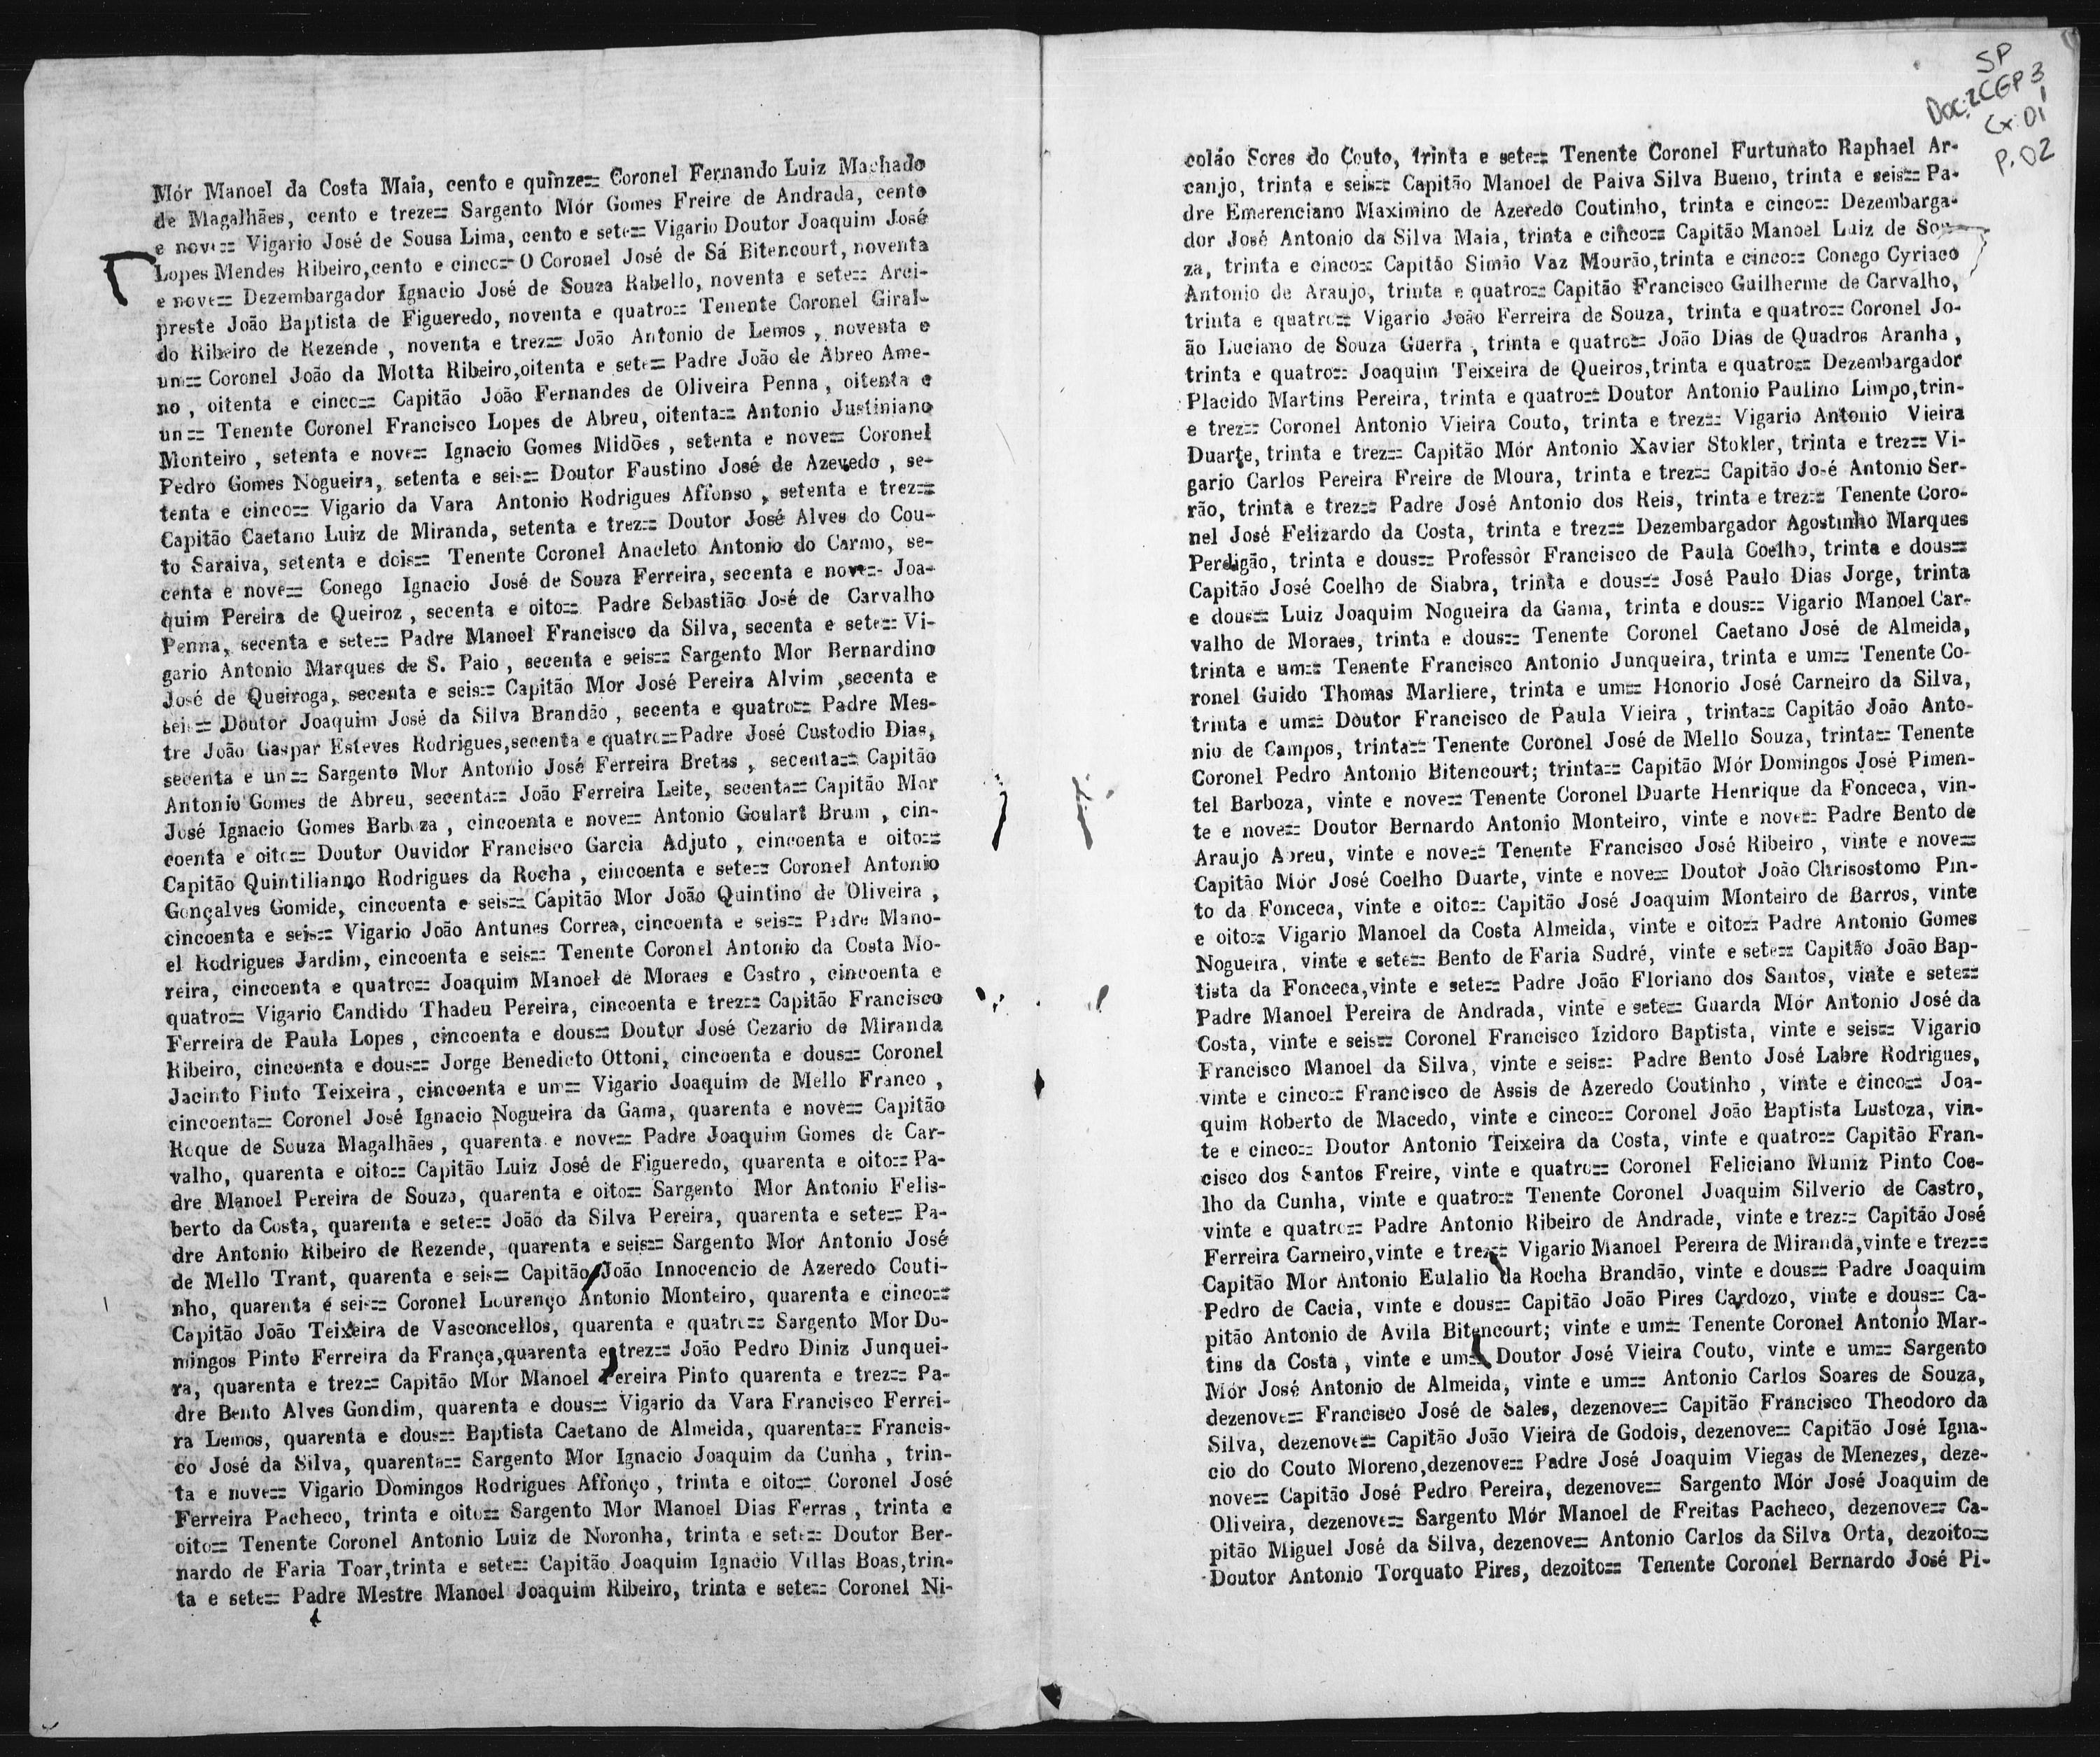 Mór Manoel da Costa Maia, cento e quinze== Coronel Fernando Luiz Machado
de Magalhães, cento e treze== Sargento Mór Gomes Freire de Andrada, cento
e nove== Vigario José de Sousa Lima, cento e sete== Vigario Doutor Joaquim José
Lopes Mendes Ribeiro,cento e cinco== O Coronel José de Sá Bitencourt, noventa
e nove== Dezembargador Ignacio José de Souza Rabello, noventa e sete== Arci-
preste João Baptista de Figueredo, noventa e quatro== Tenente Coronel Giral-
do Ribeiro de Rezende , noventa e trez== João Antonio de Lemos , noventa e
um== Coronel João da Motta Ribeiro,oitenta e sete== Padre João de Abreo Ame-
no , oitenta e cinco== Capitão João Fernandes de Oliveira Penna , oitenta e
un== Tenente Coronel Francisco Lopes de Abreu, oitenta== Antonio Justiniano
Monteiro , setenta e nove== Ignacio Gomes Midões , setenta e nove== Coronel
Pedro Gomes Nogueira, setenta e seis== Doutor Faustino José de Azevedo , se-
tenta e cinco== Vigario da Vara Antonio Rodrigues Affonso , setenta e trez==
Capitão Caetano Luiz de Miranda, setenta e trez== Doutor José Alves do Cou-
to Saraiva, setenta e dois== Tenente Coronel Anacleto Antonio do Carmo, se-
centa e nove== Conego Ignacio José de Souza Ferreira, secenta e nove== Joa-
quim Pereira de Queiroz , secenta e oito== Padre Sebastião José de Carvalho
Penna, secenta e sete== Padre Manoel Francisco da Silva, secenta e sete== Vi-
gario Antonio Marques de S. Paio , secenta e seis== Sargento Mor Bernardino
José de Queiroga, secenta e seis== Capitão Mor José Pereira Alvim ,secenta e
seis== Doutor Joaquim José da Silva Brandão , secenta e quatro== Padre Mes-
tre João Gaspar Esteves Rodrigues,secenta e quatro== Padre José Custodio Dias,
secenta e un== Sargento Mor Antonio José Ferreira Bretas , secenta== Capitão
Antonio Gomes de Abreu, secenta== João Ferreira Leite, secenta== Capitão Mor
José Ignacio Gomes Barboza , cincoenta e nove== Antonio Goulart Brum , cin-
coenta e oito== Doutor Ouvidor Francisco Garcia Adjuto , cincoenta e oito==
Capitão Quintilianno Rodrigues da Rocha , cincoenta e sete== Coronel Antonio
Gonçalves Gomide, cincoenta e seis== Capitão Mor João Quintino de Oliveira ,
cincoenta e seis== Vigario João Antunes Correa, cincoenta e seis== Padre Mano-
el Rodrigues Jardim, cincoenta e seis== Tenente Coronel Antonio da Costa Mo-
reira, cincoenta e quatro== Joaquim Manoel de Moraes e Castro , cincoenta e
quatro== Vigario Candido Thadeu Pereira, cincoenta e trez== Capitão Francisco
Ferreira de Paula Lopes , cincoenta e dous== Doutor José Cezario de Miranda
Ribeiro, cincoenta e dous== Jorge Benedicto Ottoni, cincoenta e dous== Coronel
Jacinto Pinto Teixeira , cincoenta e um== Vigario Joaquim de Mello Franco ,
cincoenta== Coronel José Ignacio Nogueira da Gama, quarenta e nove== Capitão
Roque de Souza Magalhães , quarenta e nove== Padre Joaquim Gomes de Car-
valho, quarenta e oito== Capitão Luiz José de Figueredo, quarenta e oito== Pa-
dre Manoel Pereira de Souza, quarenta e oito== Sargento Mor Antonio Felis-
berto da Costa, quarenta e sete== João da Silva Pereira, quarenta e sete== Pa-
dre Antonio Ribeiro de Rezende, quarenta e seis== Sargento Mor Antonio José
de Mello Trant, quarenta e seis== Capitão João Innocencio de Azeredo Couti-
nho, quarenta e seis== Coronel Lourenço Antonio Monteiro, quarenta e cinco==
Capitão João Teixeira de Vasconcellos, quarenta e quatro== Sargento Mor Do-
mingos Pinto Ferreira da França,quarenta e trez== João Pedro Diniz Junquei-
ra, quarenta e trez== Capitão Mor Manoel Pereira Pinto quarenta e trez== Pa-
dre Bento Alves Gondim, quarenta e dous== Vigario da Vara Francisco Ferrei-
ra Lemos, quarenta e dous== Baptista Caetano de Almeida, quarenta== Francis-
co José da Silva, quarenta== Sargento Mor Ignacio Joaquim da Cunha , trin-
ta e nove== Vigario Domingos Rodrigues Affonço , trinta e oito== Coronel José
Ferreira Pacheco, trinta e oito== Sargento Mor Manoel Dias Ferras , trinta e
oito== Tenente Coronel Antonio Luiz de Noronha, trinta e sete== Doutor Ber-
nardo de Faria Toar,trinta e sete== Capitão Joaquim Ignacio Villas Boas,trin-
ta e sete== Padre Mestre Manoel Joaquim Ribeiro, trinta e sete== Coronel Ni-
SP
Doc:2CGP3
1
Cx:01
P.02
coláo Sores do Couto, trinta e sete== Tenente Coronel Furtunato Raphael Ar-
canjo, trinta e seis== Capitão Manoel de Paiva Silva Bueno, trinta e seis== Pa-
dre Emerenciano Maximino de Azeredo Coutinho, trinta e cinco== Dezembarga-
dor José Antonio da Silva Maia, trinta e cinco== Capitão Manoel Luiz de Sou-
za, trinta e cinco== Capitão Simão Vaz Mourão,trinta e cinco== Conego Cyriaco
Antonio de Araujo, trinta e quatro== Capitão Francisco Guilherme de Carvalho,
trinta e quatro== Vigario João Ferreira de Souza, trinta e quatro== Coronel Jo-
ão Luciano de Souza Guerra , trinta e quatro== João Dias de Quadros Aranha ,
trinta e quatro== Joaquim Teixeira de Queiros,trinta e quatro== Dezembargador
Placido Martins Pereira, trinta e quatro== Doutor Antonio Paulino Limpo,trin-
e trez== Coronel Antonio Vieira Couto, trinta e trez== Vigario Antonio Vieira
Duarte, trinta e trez== Capitão Mór Antonio Xavier Stokler, trinta e trez== Vi-
gario Carlos Pereira Freire de Moura, trinta e trez== Capitão José Antonio Ser-
rão, trinta e trez== Padre José Antonio dos Reis, trinta e trez== Tenente Coro-
nel José Felizardo da Costa, trinta e trez== Dezembargador Agostinho Marques
Perdigão, trinta e dous== Professôr Francisco de Paula Coelho, trinta e dous==
Capitão José Coelho de Siabra, trinta e dous== José Paulo Dias Jorge, trinta
e dous== Luiz Joaquim Nogueira da Gama, trinta e dous== Vigario Manoel Car-
valho de Moraes, trinta e dous== Tenente Coronel Caetano José de Almeida,
trinta e um== Tenente Francisco Antonio Junqueira, trinta e um== Tenente Co-
ronel Guido Thomas Marliere, trinta e um== Honorio José Carneiro da Silva,
trinta e um== Doutor Francisco de Paula Vieira , trinta== Capitão João Anto-
nio de Campos, trinta== Tenente Coronel José de Mello Souza, trinta== Tenente
Coronel Pedro Antonio Bitencourt; trinta== Capitão Mór Domingos José Pimen-
tel Barboza, vinte e nove== Tenente Coronel Duarte Henrique da Fonceca, vin-
te e nove== Doutor Bernardo Antonio Monteiro, vinte e nove== Padre Bento de
Araujo Abreu, vinte e nove== Tenente Francisco José Ribeiro , vinte e nove==
Capitão Mór José Coelho Duarte, vinte e nove== Doutor João Chrisostomo Pin-
to da Fonceca, vinte e oito== Capitão José Joaquim Monteiro de Barros, vinte
e oito== Vigario Manoel da Costa Almeida, vinte e oito== Padre Antonio Gomes
Nogueira, vinte e sete== Bento de Faria Sudré, vinte e sete== Capitão João Bap-
tista da Fonceca,vinte e sete== Padre João Floriano dos Santos, vinte e sete==
Padre Manoel Pereira de Andrada, vinte e sete== Guarda Mór Antonio José da
Costa, vinte e seis== Coronel Francisco Izidoro Baptista, vinte e seis== Vigario
Francisco Manoel da Silva, vinte e seis== Padre Bento José Labre Rodrigues,
vinte e cinco== Francisco de Assis de Azeredo Coutinho , vinte e cinco== Joa-
quim Roberto de Macedo, vinte e cinco== Coronel João Baptista Lustoza, vin-
te e cinco== Doutor Antonio Teixeira da Costa, vinte e quatro== Capitão Fran-
cisco dos Santos Freire, vinte e quatro== Coronel Feliciano Muniz Pinto Coe-
lho da Cunha, vinte e quatro== Tenente Coronel Joaquim Silverio de Castro,
vinte e quatro== Padre Antonio Ribeiro de Andrade, vinte e trez== Capitão José
Ferreira Carneiro,vinte e trez== Vigario Manoel Pereira de Miranda,vinte e trez==
Capitão Mor Antonio Eulalio da Rocha Brandão, vinte e dous== Padre Joaquim
Pedro de Cacia, vinte e dous== Capitão João Pires Cardozo, vinte e dous== Ca-
pitão Antonio de Avila Bitencourt; vinte e um== Tenente Coronel Antonio Mar-
tins da Costa , vinte e um== Doutor José Vieira Couto, vinte e um== Sargento
Mór José Antonio de Almeida, vinte e um== Antonio Carlos Soares de Souza,
dezenove== Francisco José de Sales, dezenove== Capitão Francisco Theodoro da
Silva, dezenove== Capitão João Vieira de Godois, dezenove== Capitão José Igna-
cio do Couto Moreno,dezenove== Padre José Joaquim Viegas de Menezes, deze-
nove== Capitão José Pedro Pereira, dezenove== Sargento Mór José Joaquim de
Oliveira, dezenove== Sargento Mór Manoel de Freitas Pacheco, dezenove== Ca-
pitão Miguel José da Silva, dezenove== Antonio Carlos da Silva Orta, dezoito==
Doutor Antonio Torquato Pires, dezoito== Tenente Coronel Bernardo José Pi-